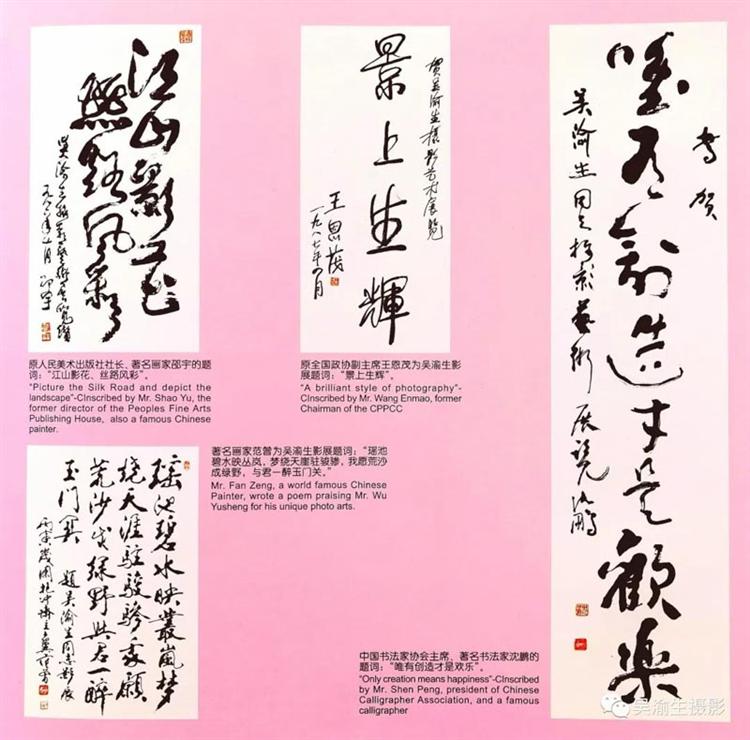 江山影花
絲路風彩
賀吴渝生摄影艺术展览
景上生輝
王恩茂
书贺
唯有創造才是歡樂
吴渝生同志摄影藝術展覽 鹏
原人民美术出版社社长、著名画家邵宇的题
词：“江山影花、丝路风彩”。
"Picture the Silk Road and depict the
landscape"-CInscribed by Mr. Shao Yu, the
former director of the Peoples Fine Arts
Publishing House, also a famous Chinese
painter.
原全国政协副主席王恩茂为吴渝生影
展题词：“景上生辉”。
"A brilliant style of photography"-
CInscribed by Mr. Wang Enmao, former
Chairman of the CPPCC
瑶池碧水映叢嵐梦
绕天涯駐駿骖我愿
荒沙成绿野与君一醉
玉门関 題吴渝生同志影展
著名画家范曾为吴渝生影展题词：“瑶池
碧水映丛岚，梦绕天崖驻骏骖，我愿荒沙
成绿野，与君一醉玉门关。”
Mr. Fan Zeng, a world famous Chinese
Painter, wrote a poem praising Mr. Wu
Yusheng for his unique photo arts.
中国书法家协会主席、著名书法家沈鹏的
题词：“唯有创造才是欢乐”。
"Only creation means happiness"-CInscribed
by Mr. Shen Peng, president of Chinese
Calligrapher Association, and a famous
calligrapher
吴渝生摄影